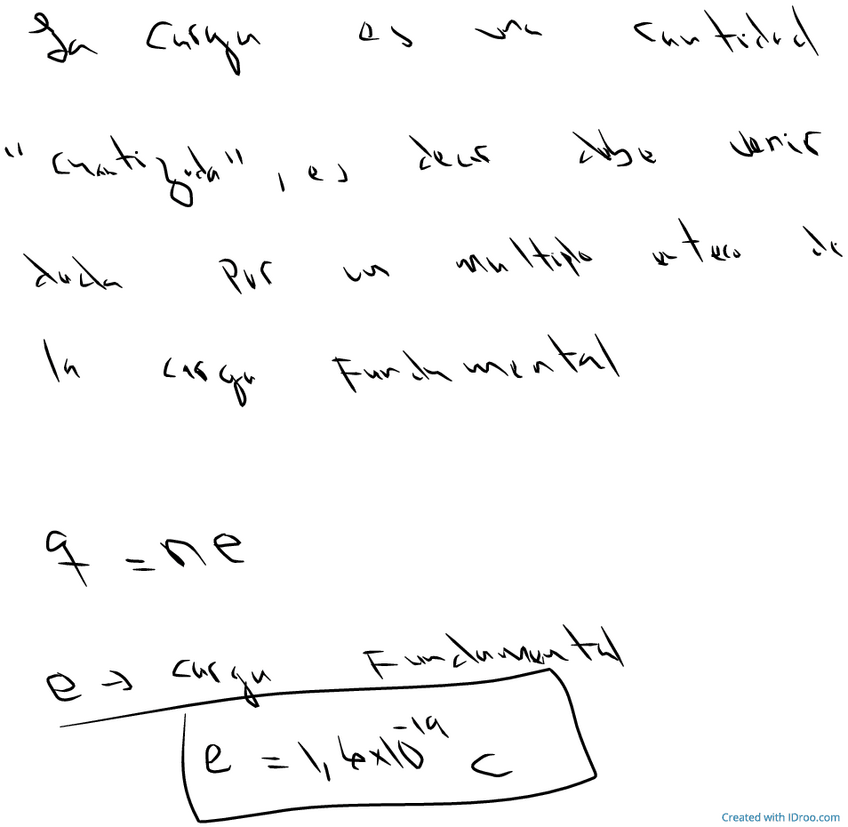 La carga es una cantidad
"cuantizada", es decir debe venir
dada por un multiplo entero de
la carga Fundamental
q = ne
e → carga Fundamental
e = 1,6x10⁻¹⁹ C
Created with IDroo.com